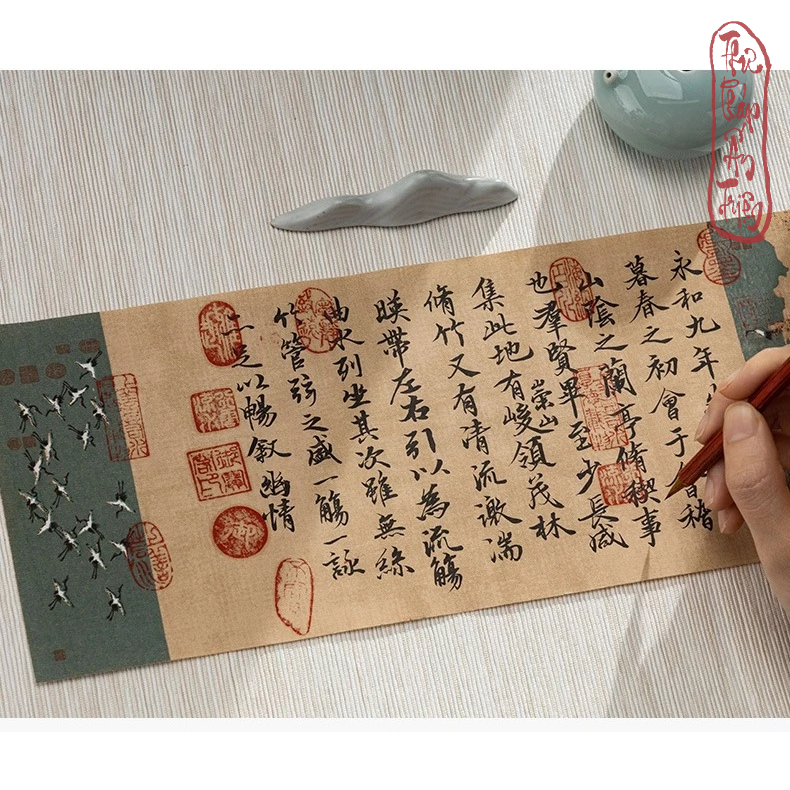 永和九年
暮春之初會于會稽
山陰之蘭亭脩禊事
也羣賢畢至少長咸
集此地有崇山峻領茂林
脩竹又有清流激湍
暎帶左右引以為流觴
曲水列坐其次雖無絲
竹管弦之盛一觴一詠
亦足以暢敘幽情